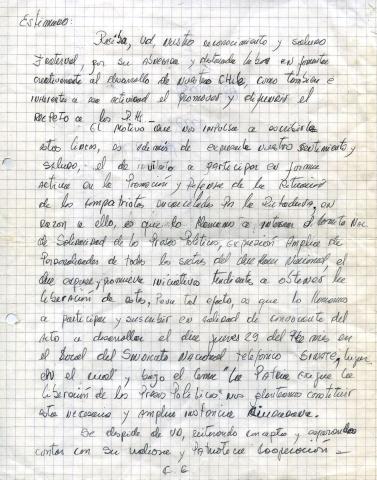 Estimado:
Reciba, Ud, Nuestro reconocimiento y saludo
fraternal, por su abnegada y destacada labor en fomentar
creativamente al desarrollo de Nuestro Chile, como tambien e
inherente a su actividad el promover y defender el
Respeto a los D.H.-
El motivo que nos impulsa a escribirle
estas líneas, es además de expresarle nuestro sentimiento y
saludo, el de invitarlo a participar en forma
activa en la Promoción y Defensa de la Situación
de los compatriotas encarcelados por la Dictadura, en
razon a ello, es que lo llamamos a integrar el Comite Nac.
de Solidaridad de los Presos Políticos, expresión Amplia de
Personalidades de todos los sectores del quehacer Nacional el
que exponga y promueva iniciativas tendiente a obtener la
liberación de estos, Para tal efecto, es que lo llamamos
a participar y suscribir en calidad de convocante del
Acto a desarrollar el dia jueves 29 del mes en
el local del Sindicato Nacional telefónico SINATE, lugar
en el cual y bajo el lema "La Patria exige la
liberación de los Presos Políticos" nos planteamos constituir
esta necesaria y amplia instancia.
Se despide de UD, reiterando conceptos y esperando
contar con su valiosa y Patriotica Cooperación-